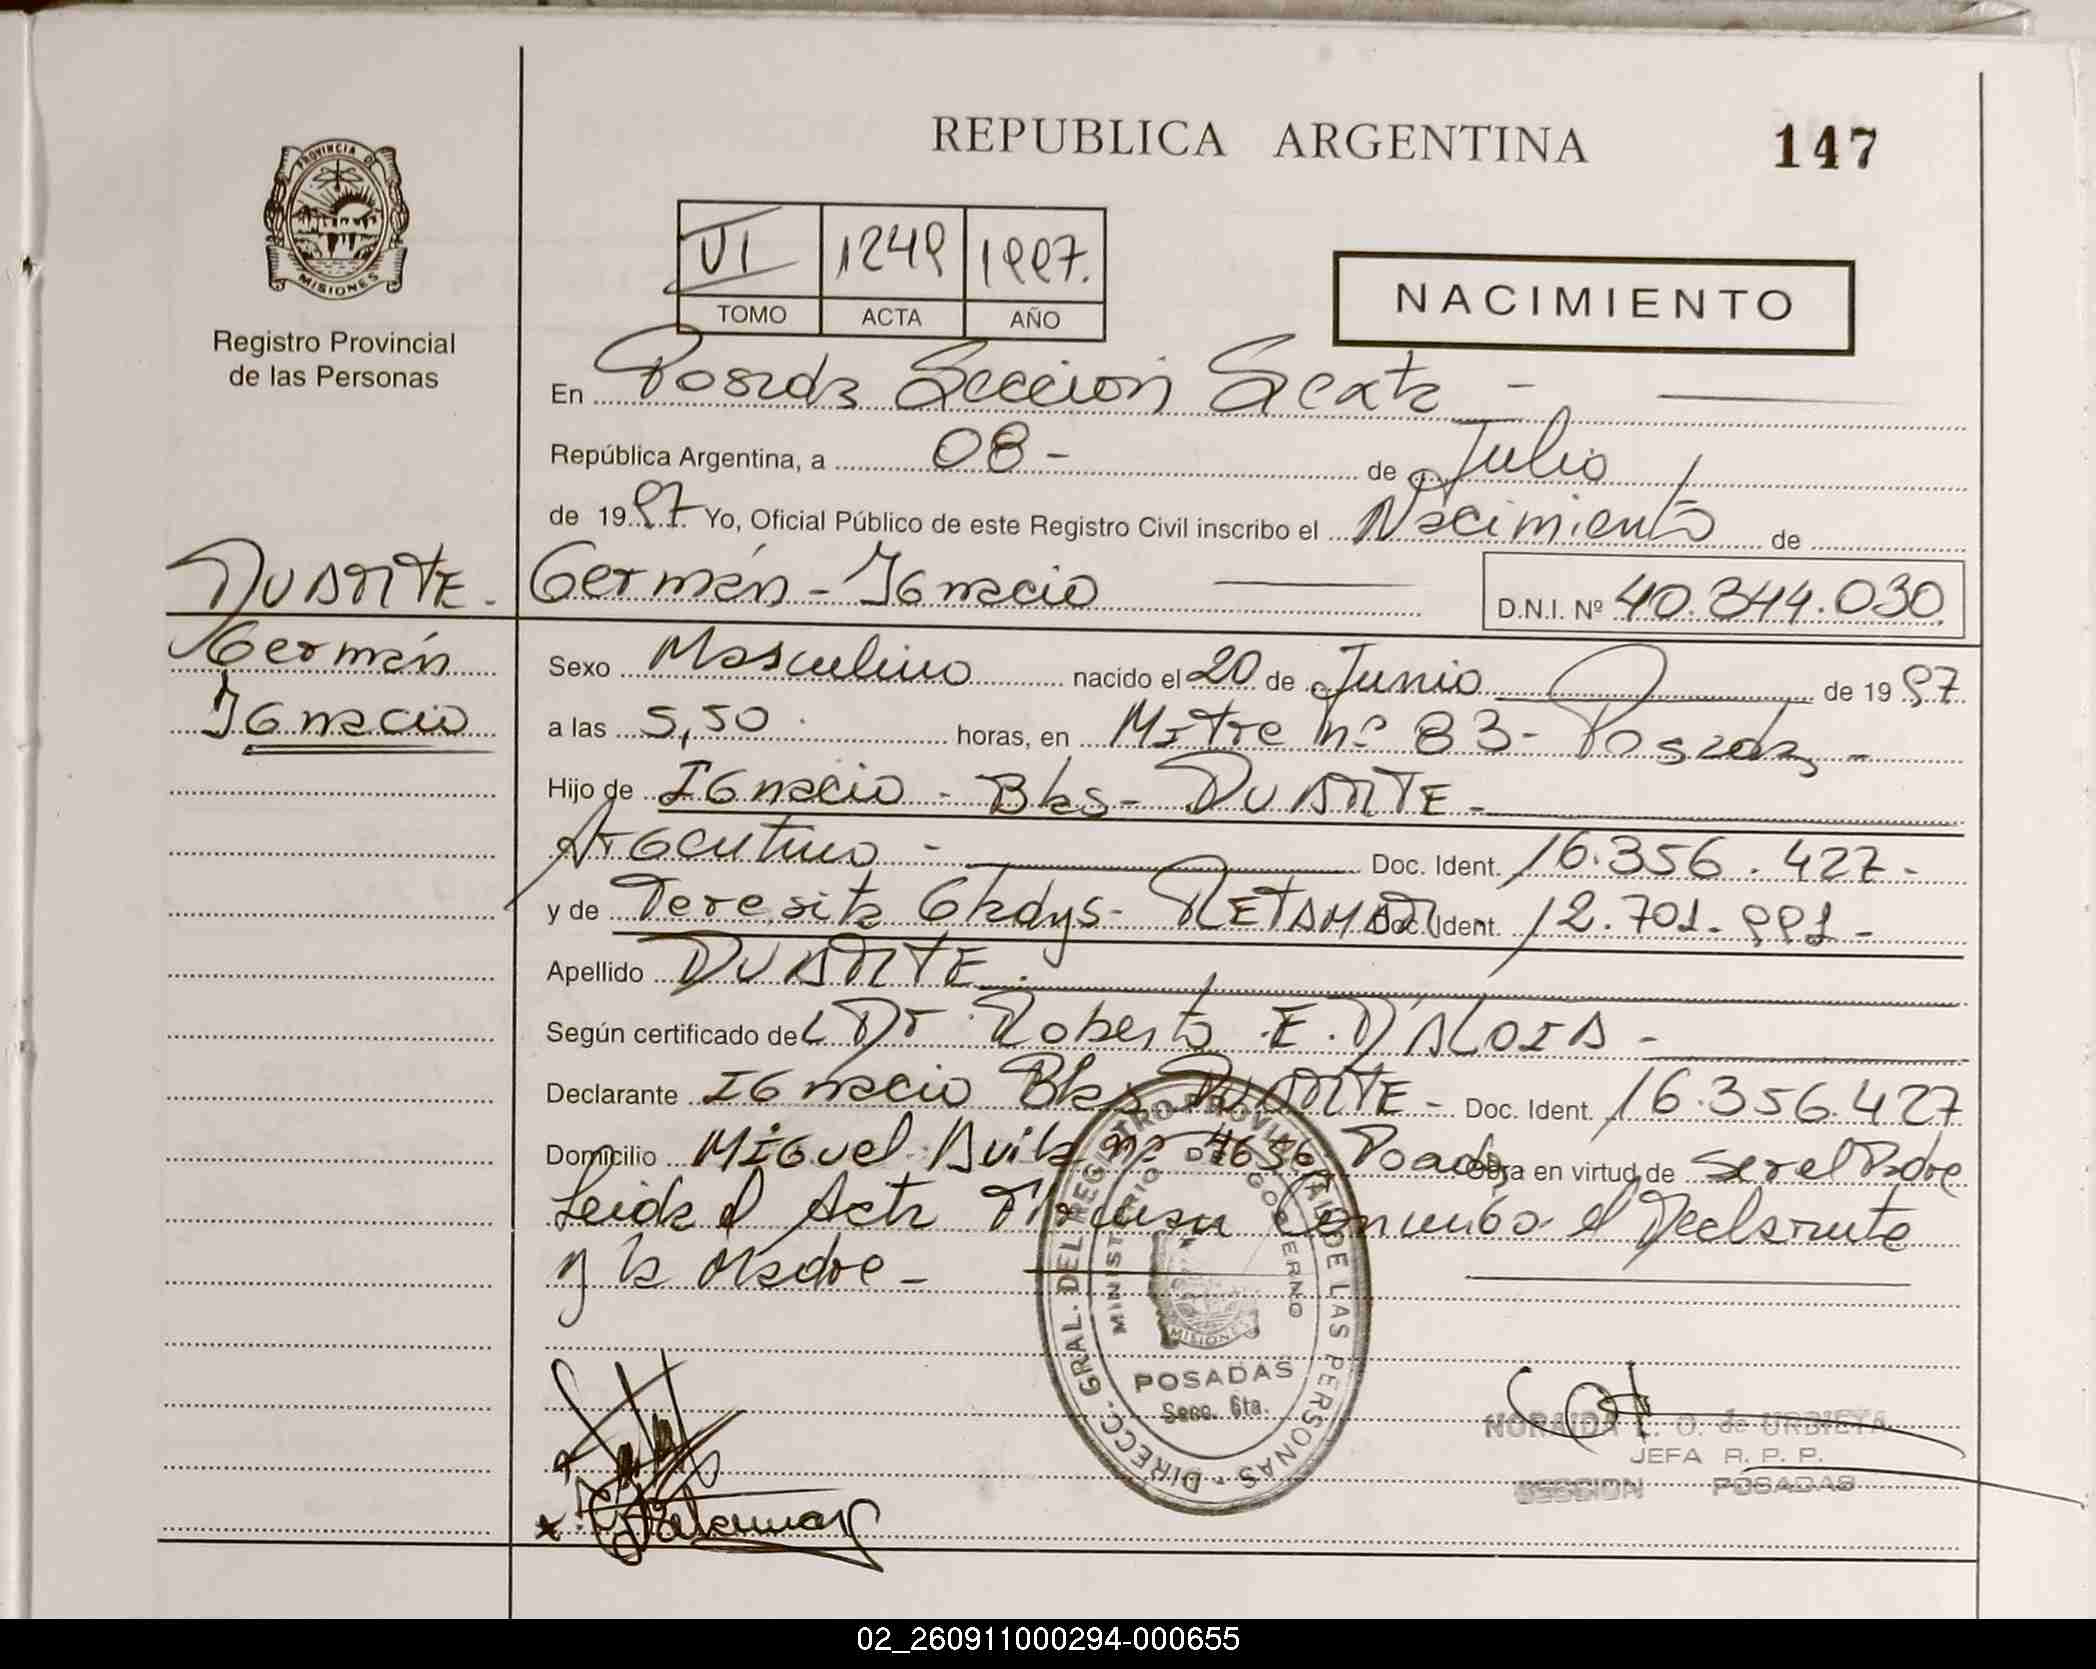 REPUBLICA ARGENTINA
147
PROVINCIA DE
MISIONES
Registro Provincial
de las Personas
VI 1249 1997.
TOMO ACTA AÑO
NACIMIENTO
En Posadas Sección Sexta -
República Argentina, a 08 - de Julio
de 1997 Yo, Oficial Público de este Registro Civil inscribo el Nacimiento de
DUARTE - Germán - Ignacio D.N.I. Nº 40.344.030
Germán
Ignacio
Sexo Masculino nacido el 20 de Junio de 1997
a las 5,50 horas, en Mitre nº 83 - Posadas -
Hijo de Ignacio - Blas - DUARTE -
Argentino - Doc. Ident. 16.356.427 -
y de Teresita Gladys - RETAMAR Doc. Ident. 12.701.991 -
Apellido DUARTE.
Según certificado del Dr. Roberto E. D'ALOIA -
Declarante Ignacio Blas DUARTE - Doc. Ident. 16.356.427
Domicilio Miguel Avila nº 4656 Posadas Obra en virtud de ser el Padre
Leida el Acta Firman Conmigo el Declarante
y la Madre -
DIRECC. GRAL. DEL REGISTRO PROVINCIAL DE LAS PERSONAS
MINISTERIO DE GOBIERNO
MISIONES
POSADAS
Secc. 6ta.
NORAIDA E. O. de URBIETA
JEFA R. P. P.
SECCION POSADAS
02_260911000294-000655